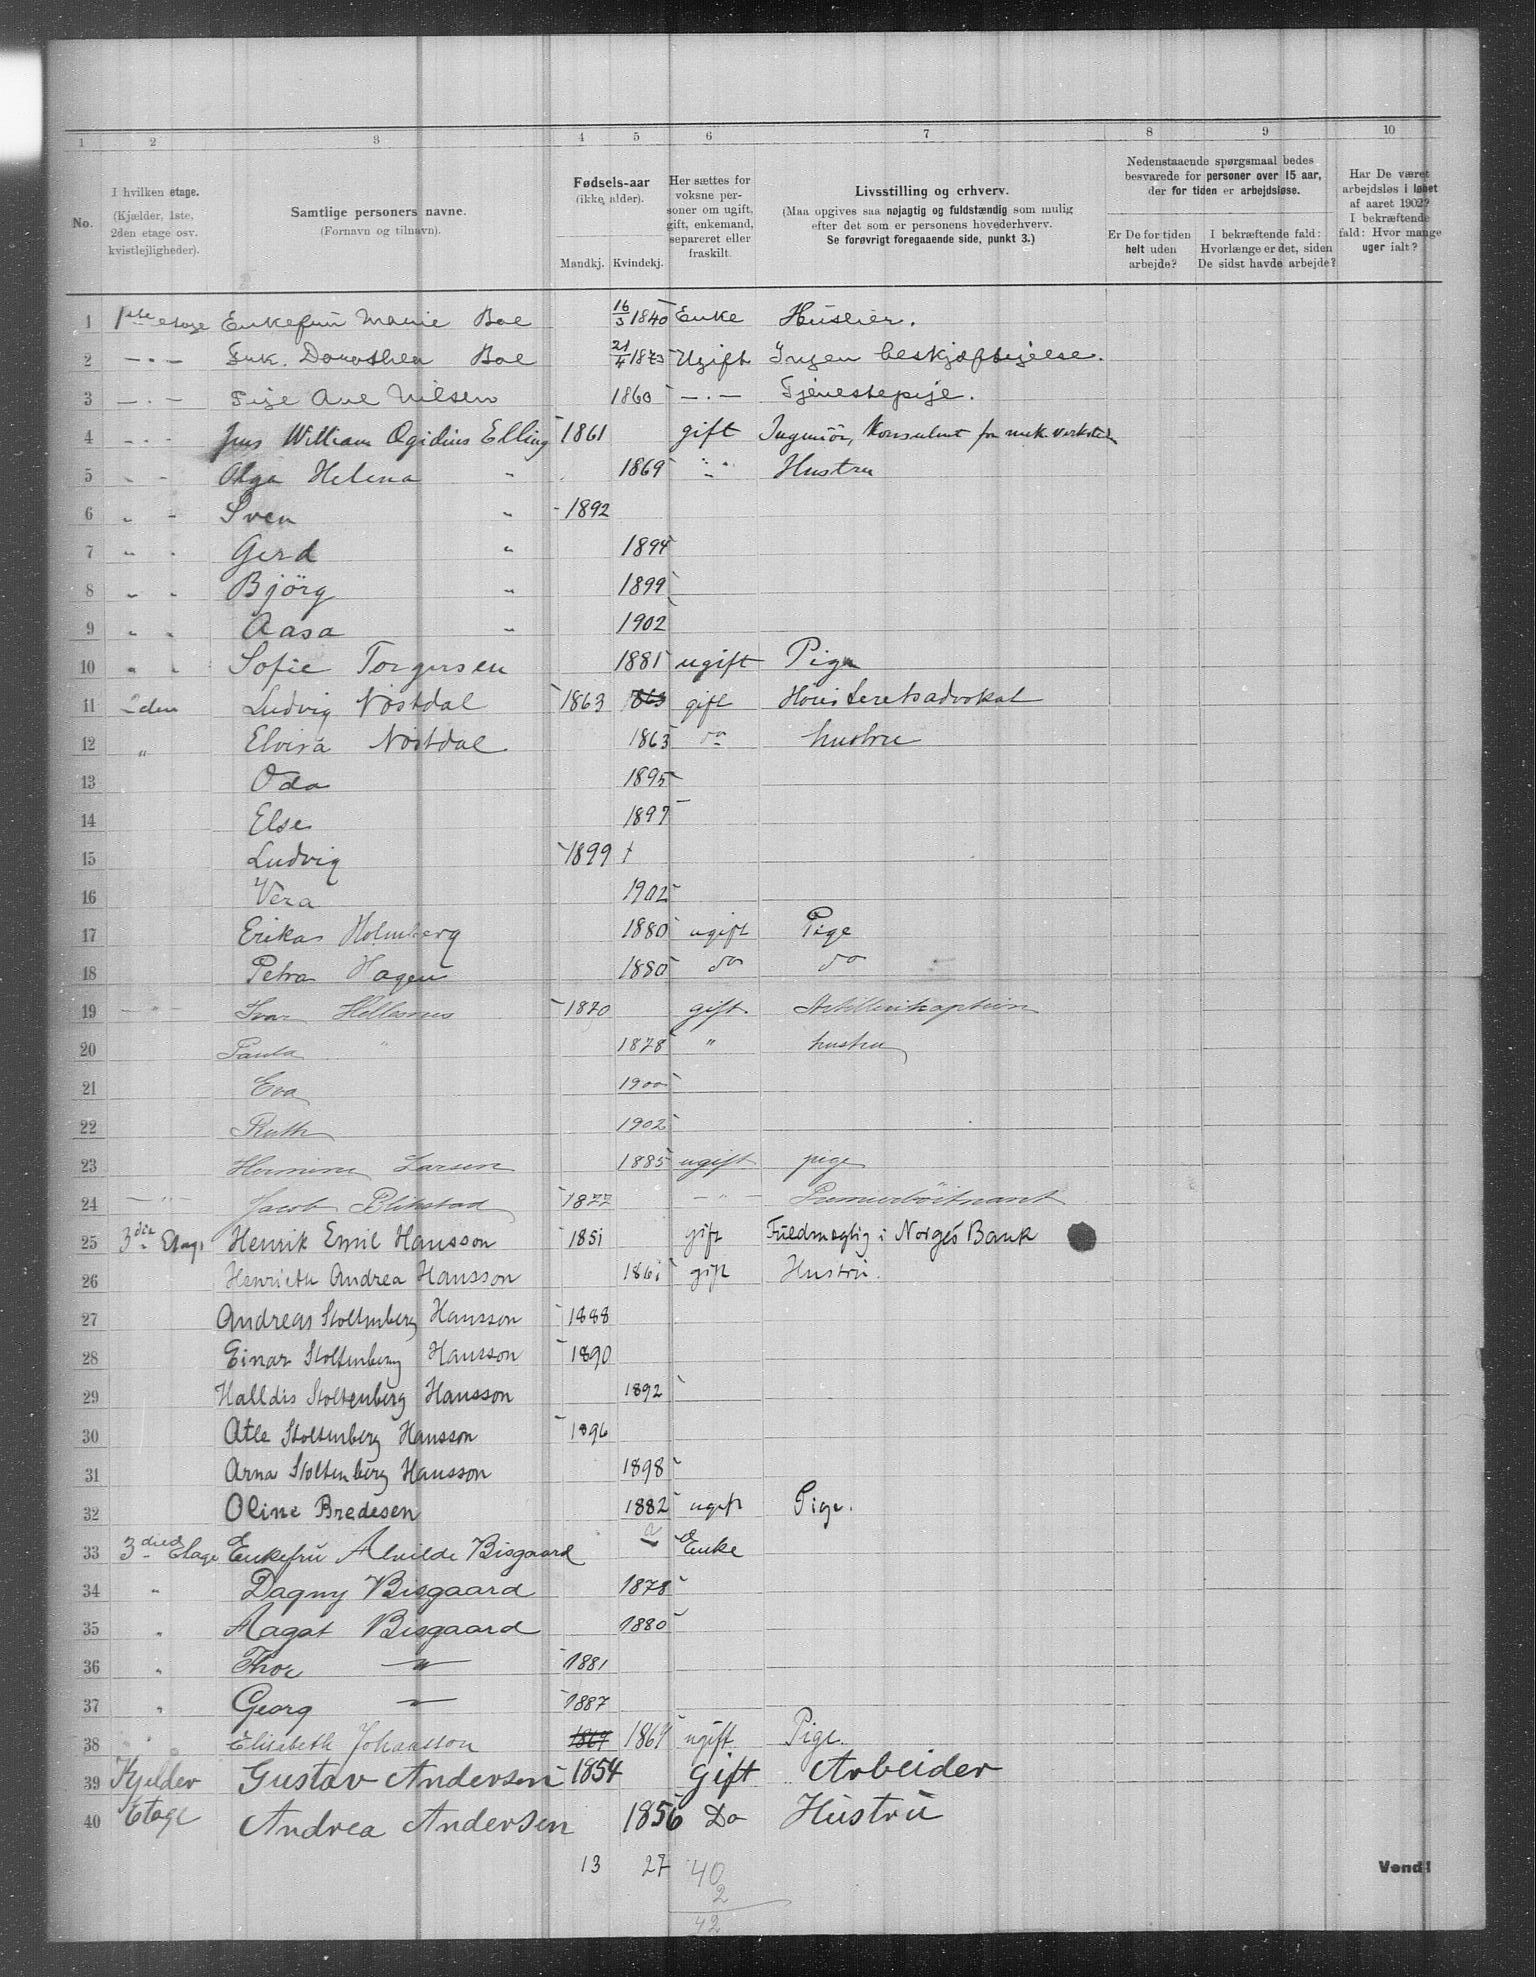 1 2 3 4 5 6 7 8 9 10
No.
I hvilken etage.
(Kjælder, 1ste,
2den etage osv.
kvistlejligheder).
Samtlige personers navne.
(Fornavn og tilnavn).
Fødsels-aar
(ikke alder).
Mandkj. Kvindekj.
Her sættes for
voksne per-
soner om ugift,
gift, enkemand,
separeret eller
fraskilt.
Livsstilling og erhverv.
(Maa opgives saa nøjagtig og fuldstændig som mulig
efter det som er personens hovederhverv.
Se forøvrigt foregaaende side, punkt 3.)
Nedenstaaende spørgsmaal bedes
besvarede for personer over 15 aar,
der for tiden er arbejdsløse.
Er De for tiden
helt uden
arbejde?
I bekræftende fald:
Hvorlænge er det, siden
De sidst havde arbejde?
Har De været
arbejdsløs i løbet
af aaret 1902?
I bekræftende
fald: Hvor mange
uger ialt?
1 1ste etage Enkefrue Marie Boe 16/3 1840 Enke Huseier.
2 — · — Frk. Dorothea Boe 21/4 1873 Ugift Ingen beskjæftigelse.
3 — · — Pige Ane Nilsen 1860 — · — Tjenestepige.
4 " " Jens William Egidius Elling 1861 gift Ingeniør, Konsulent for mek. verksted
5 " " Olga Helena " 1869 " " Hustru
6 " " Sven " 1892
7 " " Gerd " 1894
8 " " Bjørg " 1899
9 " " Aasa " 1902
10 " " Sofie Torgersen 1881 ugift Pige
11 2den Ludvig Nostdal 1863 1863 gift Høiesteretsadvokat
12 " Elvira Nostdal 1863 do hustru
13 Oda 1895
14 Else 1897
15 Ludvig 1899 1
16 Vera 1902
17 Erika Holmberg 1880 ugift Pige
18 Petra Hagen 1880 do do
19 — " — Ivar Hellesnes 1870 gift Artillerikaptein
20 Paula " 1878 " hustru
21 Eva 1900
22 Ruth 1902
23 Hermine Larsen 1885 ugift pige
24 — " — Jacob Blikstad 1877 — " — Premierløitnant
25 3die Etage Henrik Emil Hansson 1851 gift Fuldmægtig i Norges Bank
26 Henriette Andrea Hansson 1861 gift Hustru.
27 Andreas Stoltenberg Hansson 1888
28 Einar Stoltenberg Hansson 1890
29 Halldis Stoltenberg Hansson 1892
30 Atle Stoltenberg Hansson 1896
31 Arna Stoltenberg Hansson 1898
32 Oline Bredesen 1882 ugift Pige.
33 3die Etage Enkefru Alvilde Bisgaard ? Enke
34 " Dagny Bisgaard 1878
35 " Aagot Bisgaard 1880
36 " Thor — " — 1881
37 " Georg — " — 1887
38 " " Elisabeth Johansson 1869 1869 ugift Pige.
39 Kjelder Gustav Andersen 1854 Gift Arbeider
40 Etage Andrea Andersen 1856 Do Hustru
13 27 40
2
42
Vend!